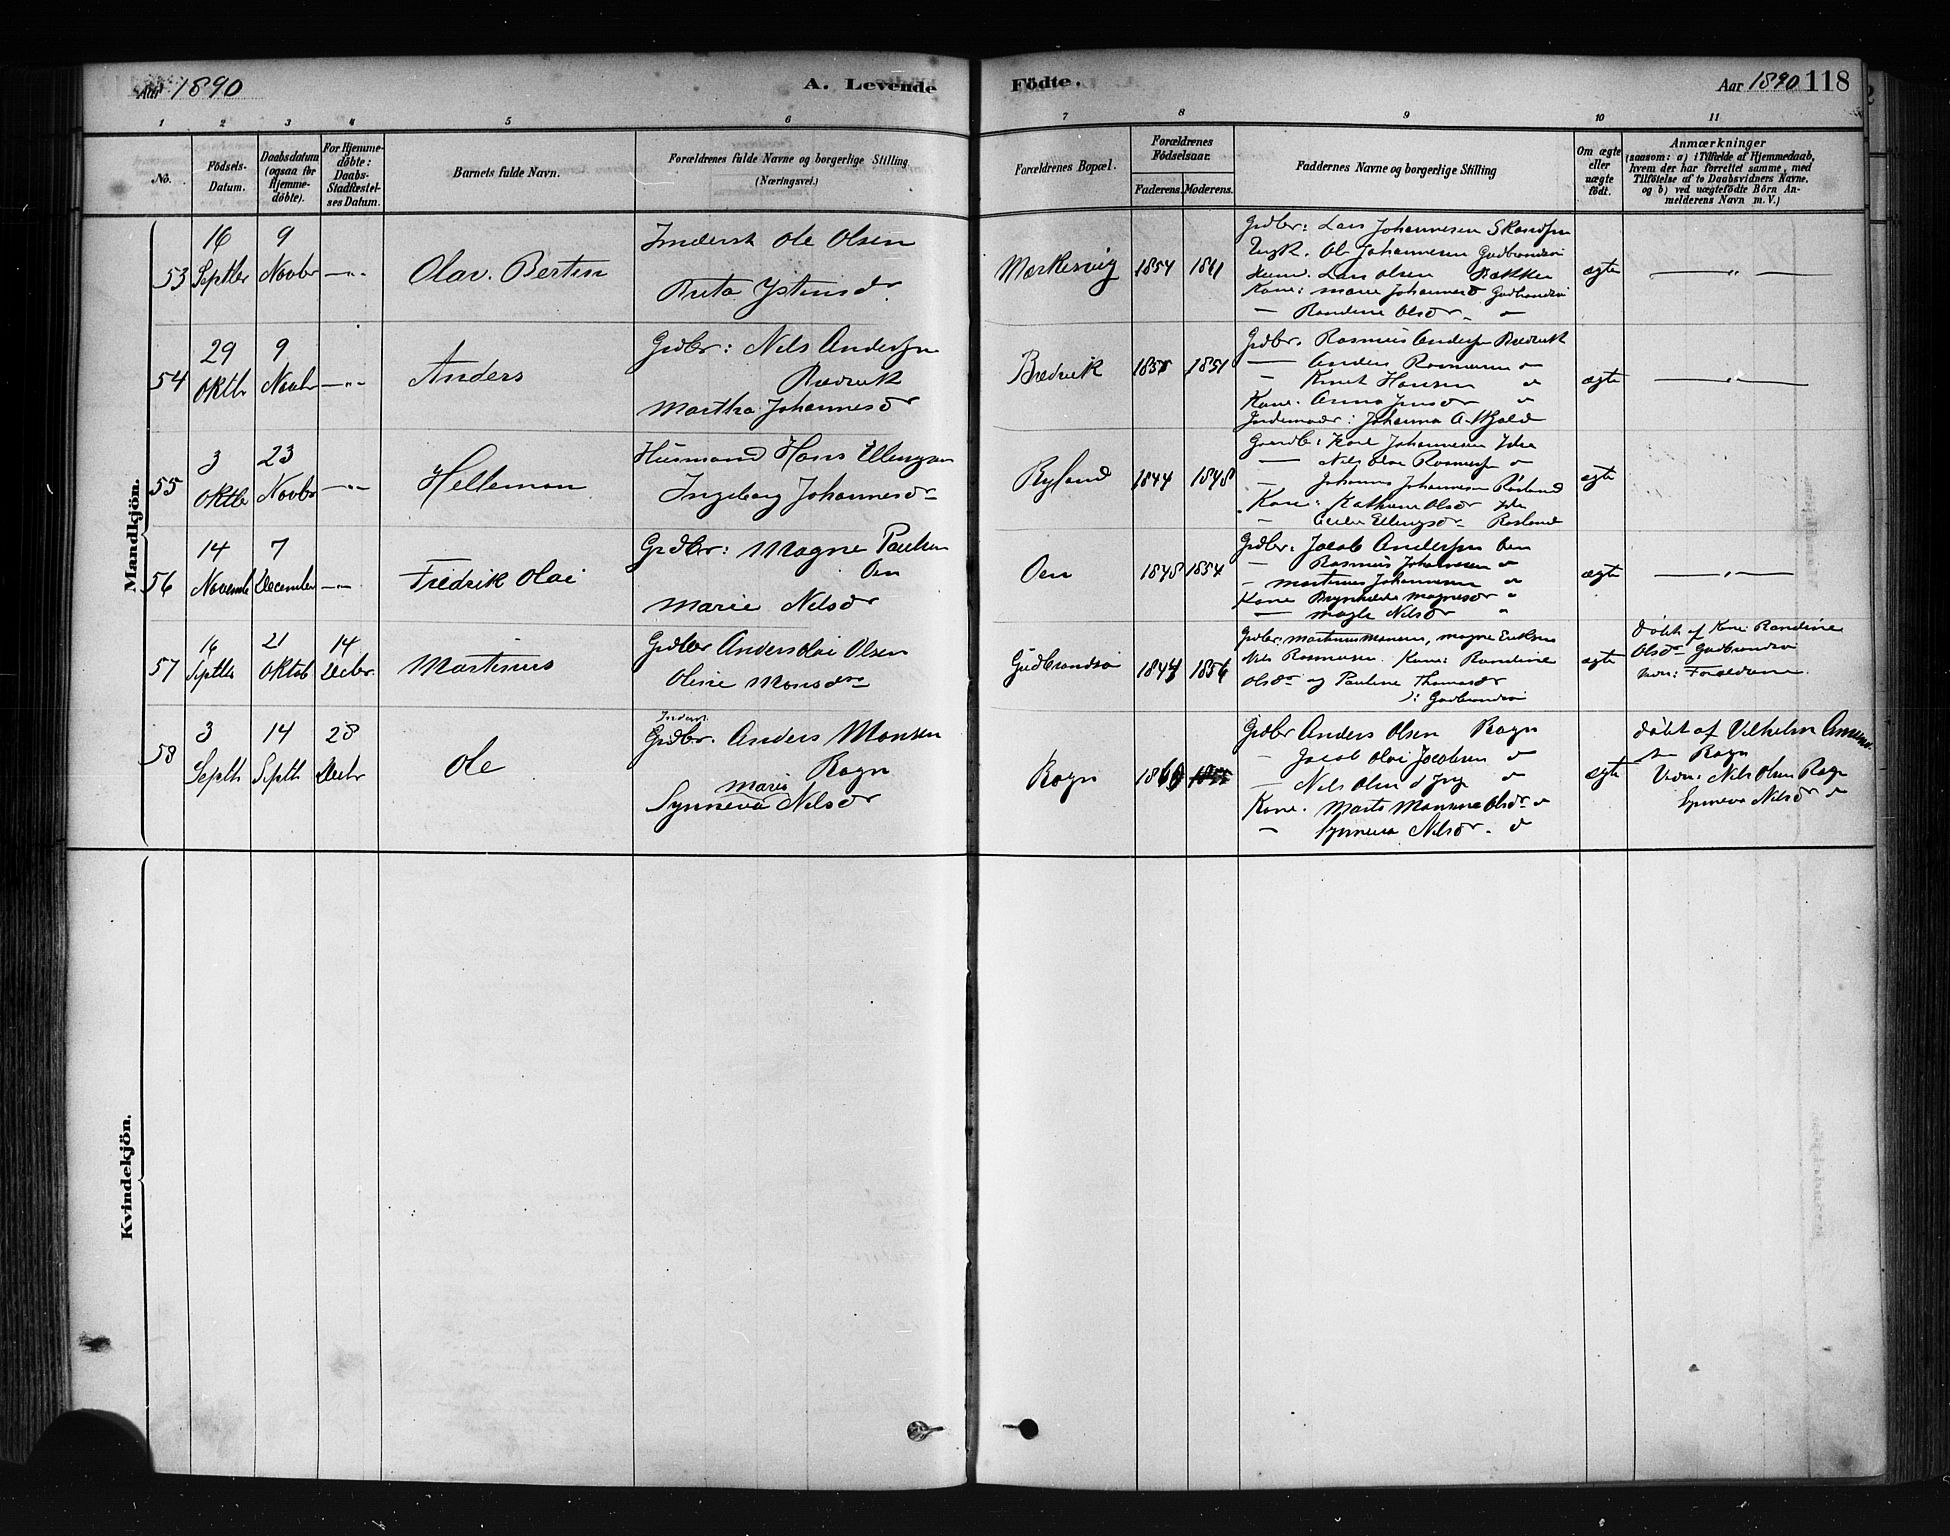 Aar 1890
A. Levende
Födte.
Aar 1890 118
1 2 3 4 5 6 7 8 9 10 11
No.
Födsels-
Datum.
Daabsdatum
(ogsaa for
Hjemme-
döbte).
For Hjemme-
döbte:
Daabs-
Stadfæstel-
ses Datum.
Barnets fulde Navn.
Forældrenes fulde Navne og borgerlige Stilling
(Næringsvei.)
Forældrenes Bopæl.
Forældrenes
Födselsaar.
Faderens. Moderens.
Faddernes Navne og borgerlige Stilling
Om ægte
eller
uægte
födt.
Anmærkninger
(saasom: a) i Tilfælde af Hjemmedaab,
hvem der har forrettet samme, med
Tilföielse af to Daabsvidners Navne,
og b) ved uægtefödte Börn An-
melderens Navn m. V.)
Mandkjön.
53
16
Septbr
9
Novbr
—"-
Olav. Bertin
Inderst Ole Olsen
Brita Ystensdr
1854
Grdbr: Lars Johannesen
Ole Johannesen Gudbrandsø
Lars Olsen Bækken
Kone: Marie Johannesd Gudbrandsø
— Randine Olsdr "
ægte
—"—
54
29
Oktbr
9
Novbr
—"-
Anders
Grdbr: Nils Andersen
Bredvik
Martha Johannesdr
Bredvik
1851
Grdbr. Rasmus Andersen Bredvik
— Anders Rasmussen "
— Knut Hansen "
Kone. Anna
Johanna
ægte
—"—
55
3
Oktbr
23
Novbr
—"-
Helleman
Husmand Hans Ellingsen
Ingeborg Johannesdr
Ryland
1844 1848
Johannesen
— Nils Olai Rasmussen "
— Johannes Johannesen Røsland
Kone: Kathrine Olsdr
— Ellingsdr Røsland
ægte
56
14
Novemb
7
December
—"-
Fredrik Olai
Grdbr: Magne Paulsen
Oen
Marie Nilsdr
Oen
1848 1854
Grdbr: Jacob Andersen Oen
— Rasmus Johannesen "
— Martinus Johannesen "
Kone Brynhilde Magnesdr "
— Magle Nilsdr "
ægte
—"—
57
16
Septbr
21
Oktob
14
Decbr.
Martinus
Grdbr Anders Olai Olsen
Oline Monsdr
Gudbrandsø
1856
Grdbr: Martinus Monsen, Magne Eriksen
Nils Rasmussen. Kone: Randine
Olsdr og Pauline Thomasdr
): Gudbrandsø
ægte
døbt af Kone Randine
Olsdr Gudbrandsø
Vidn: Forældrene.
58
3
Septb
14
Septb
28
Decbr
Ole
Inderst
Grdbr. Anders Monsen
Rogn
Marie
Synneva Nilsdr
Rogn
Grdbr Anders Olsen Rogn
— Jacob Olai Jacobsen "
— Nils Olsen d Yng "
Kone. Marta Monsine Olsdr "
— Synneva Nilsdr. "
ægte
døbt af Vilhelm
Rogn
Vidn: Nils Olsen Rogn
Synneva Nilsdr "
Kvindekjön.